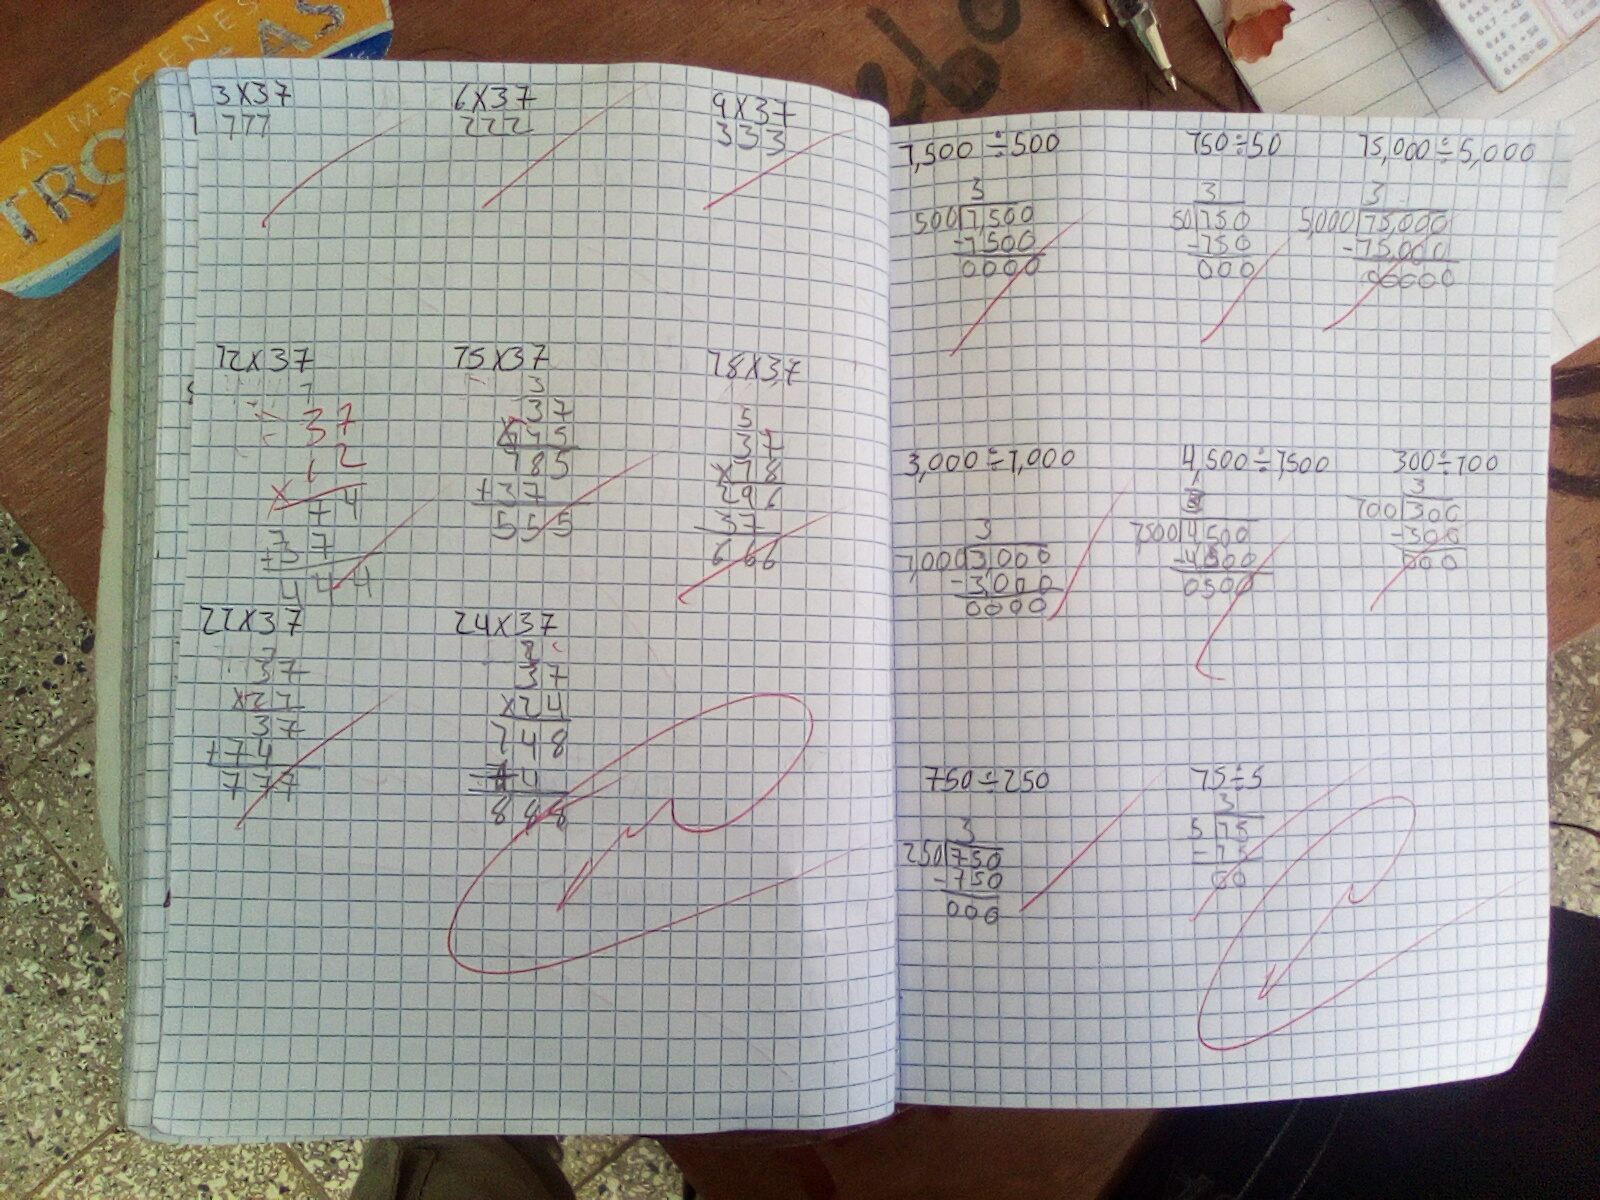 AIMAGENES
3X37
111
6X37
222
9X37
333
12X37
1
37
x12
74
+37
444
15X37
3
37
x15
185
+37
555
18X37
5
37
x18
296
37
666
21X37
37
x21
37
+74
777
24X37
2
37
x24
148
74
888
1,500÷500
3
500 1,500
-1500
0000
150÷50
3
50 150
-150
000
15,000÷5,000
3
5,000 15,000
-15,000
00000
3,000÷1,000
3
1,000 3,000
-3,000
0000
4,500÷1500
3
1500 4,500
-4500
0500
300÷100
3
100 300
-300
000
750÷250
3
250 750
-750
000
15÷5
3
5 15
-15
00